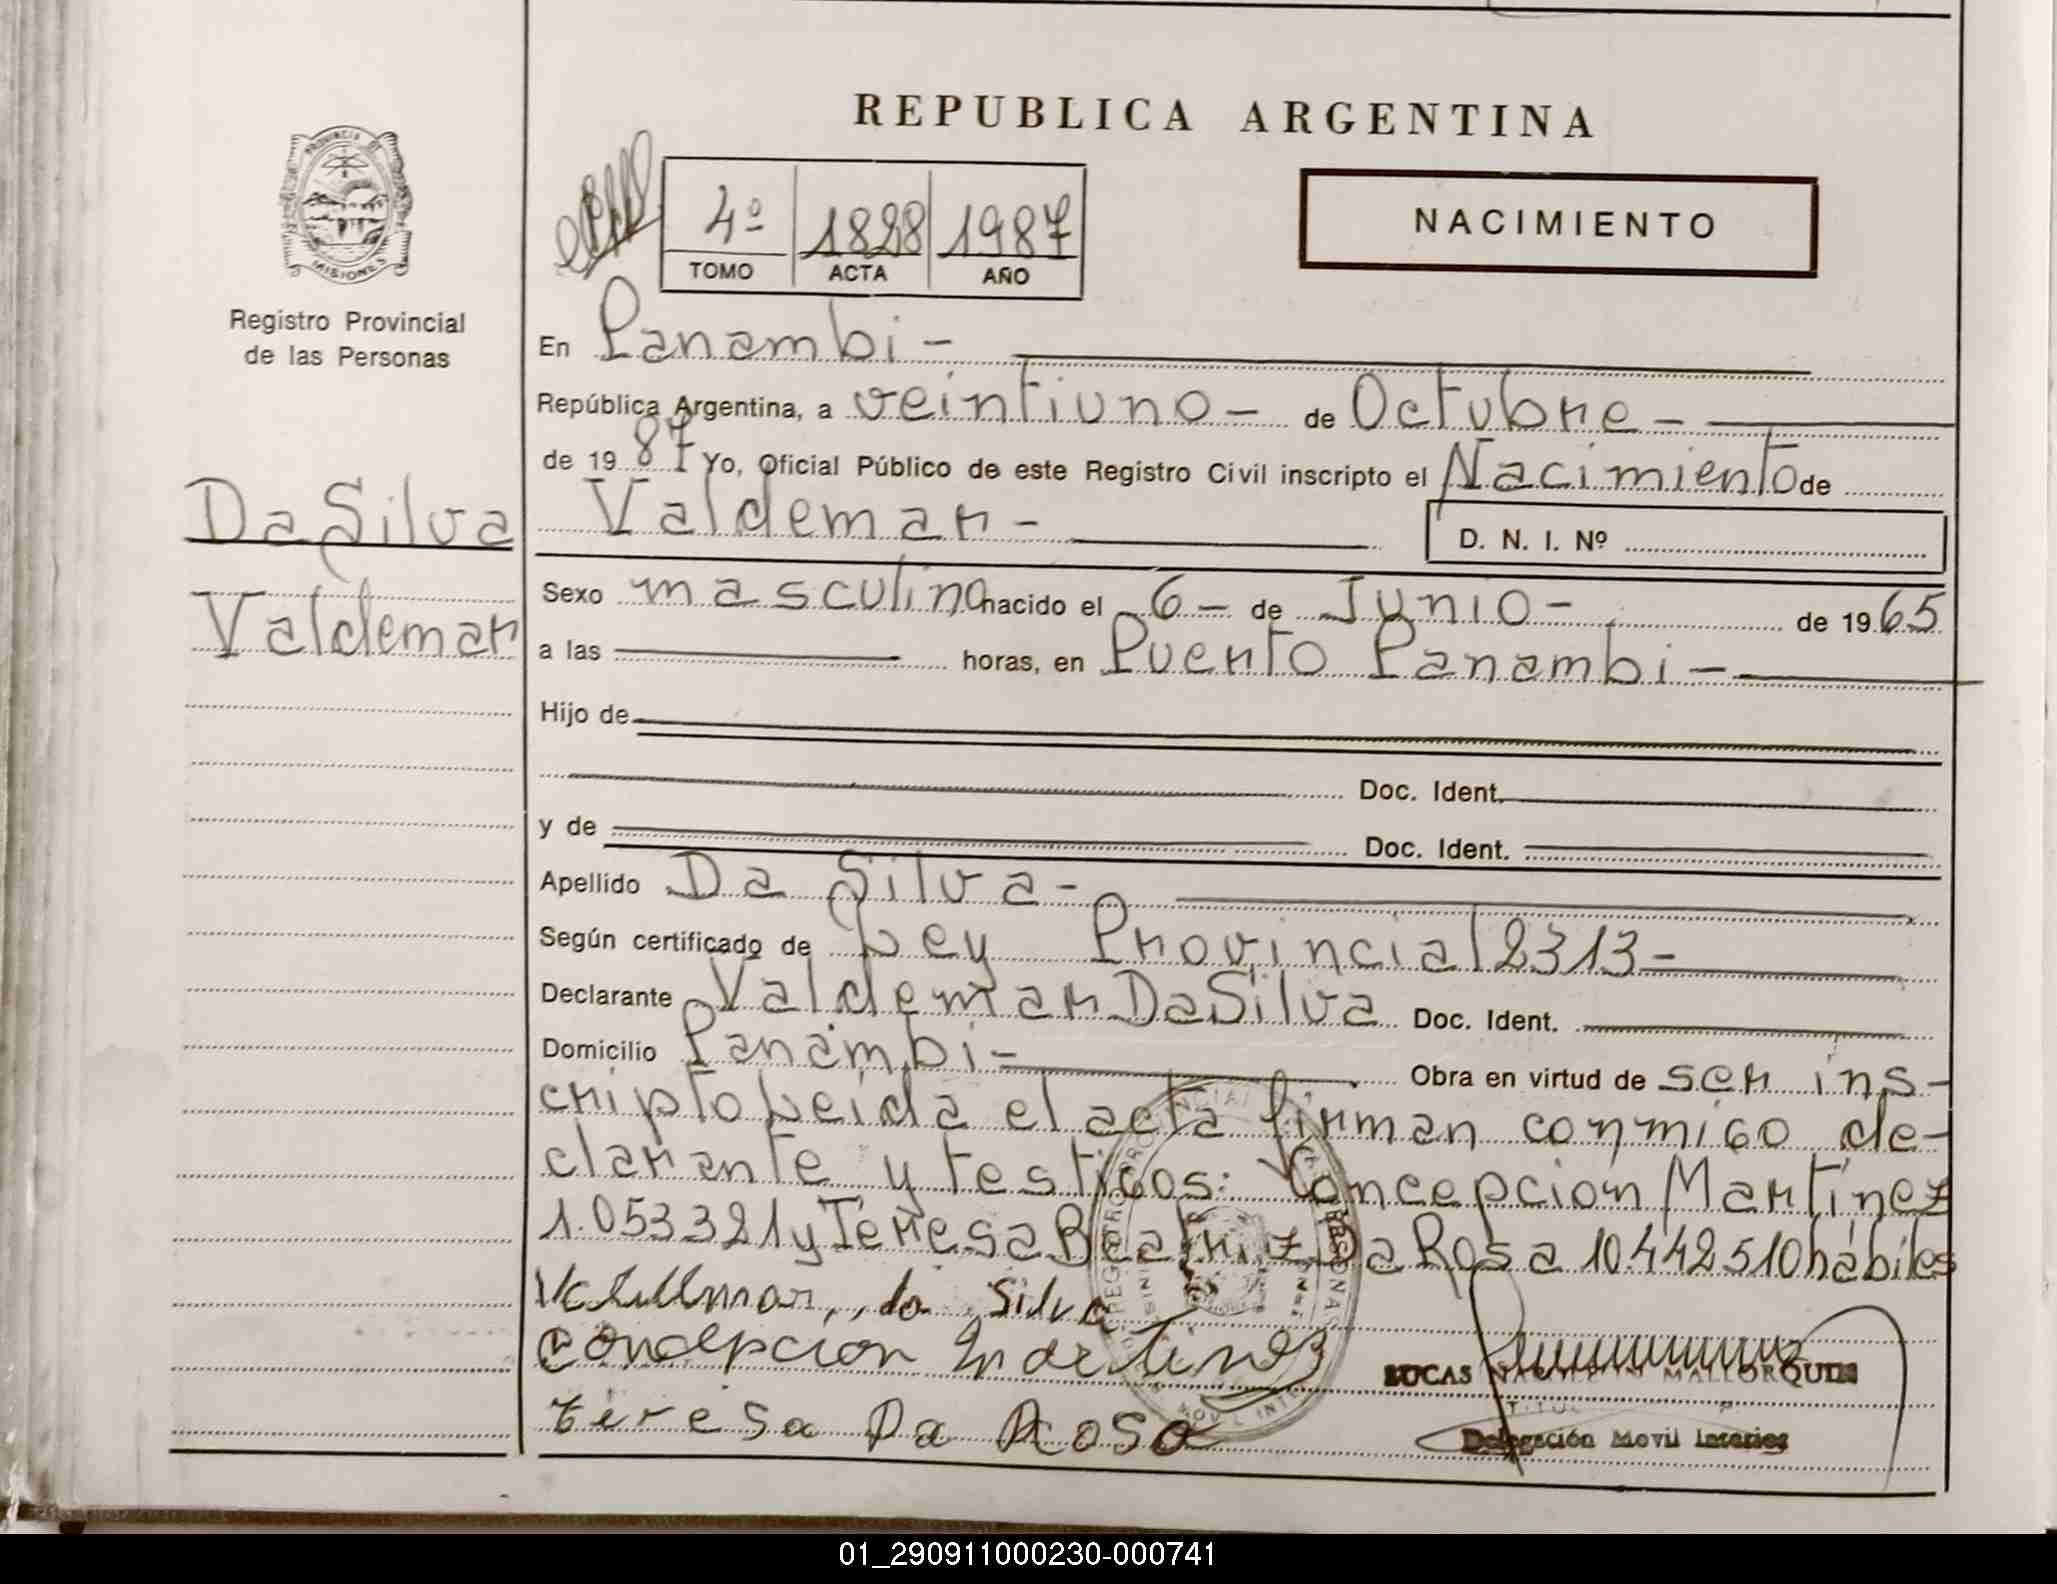 REPUBLICA ARGENTINA
PROVINCIA DE
MISIONES
Registro Provincial
de las Personas
4º 1828 1987
TOMO ACTA AÑO
NACIMIENTO
En Panambi -
República Argentina, a veintiuno - de Octubre -
de 1987 Yo, Oficial Público de este Registro Civil inscripto el Nacimiento de
Valdemar -
D. N. I. Nº
Da Silva
Valdemar
Sexo masculino nacido el 6 - de Junio - de 1965
a las horas, en Puerto Panambi -
Hijo de
Doc. Ident.
y de Doc. Ident.
Apellido Da Silva -
Según certificado de Ley Provincial 2313 -
Declarante Valdemar Da Silva Doc. Ident.
Domicilio Panambi - Obra en virtud de ser ins-
cripto Leída el acta firman conmigo de-
clarante y testigos: Concepción Martínez
1.053321 y Teresa Beatriz Da Rosa 10.442510 hábiles
Valdemar da Silva
Concepcion Martinez
teresa Da Rosa
LUCAS MALLORQUIN
Delegación Movil Interior
01_290911000230-000741